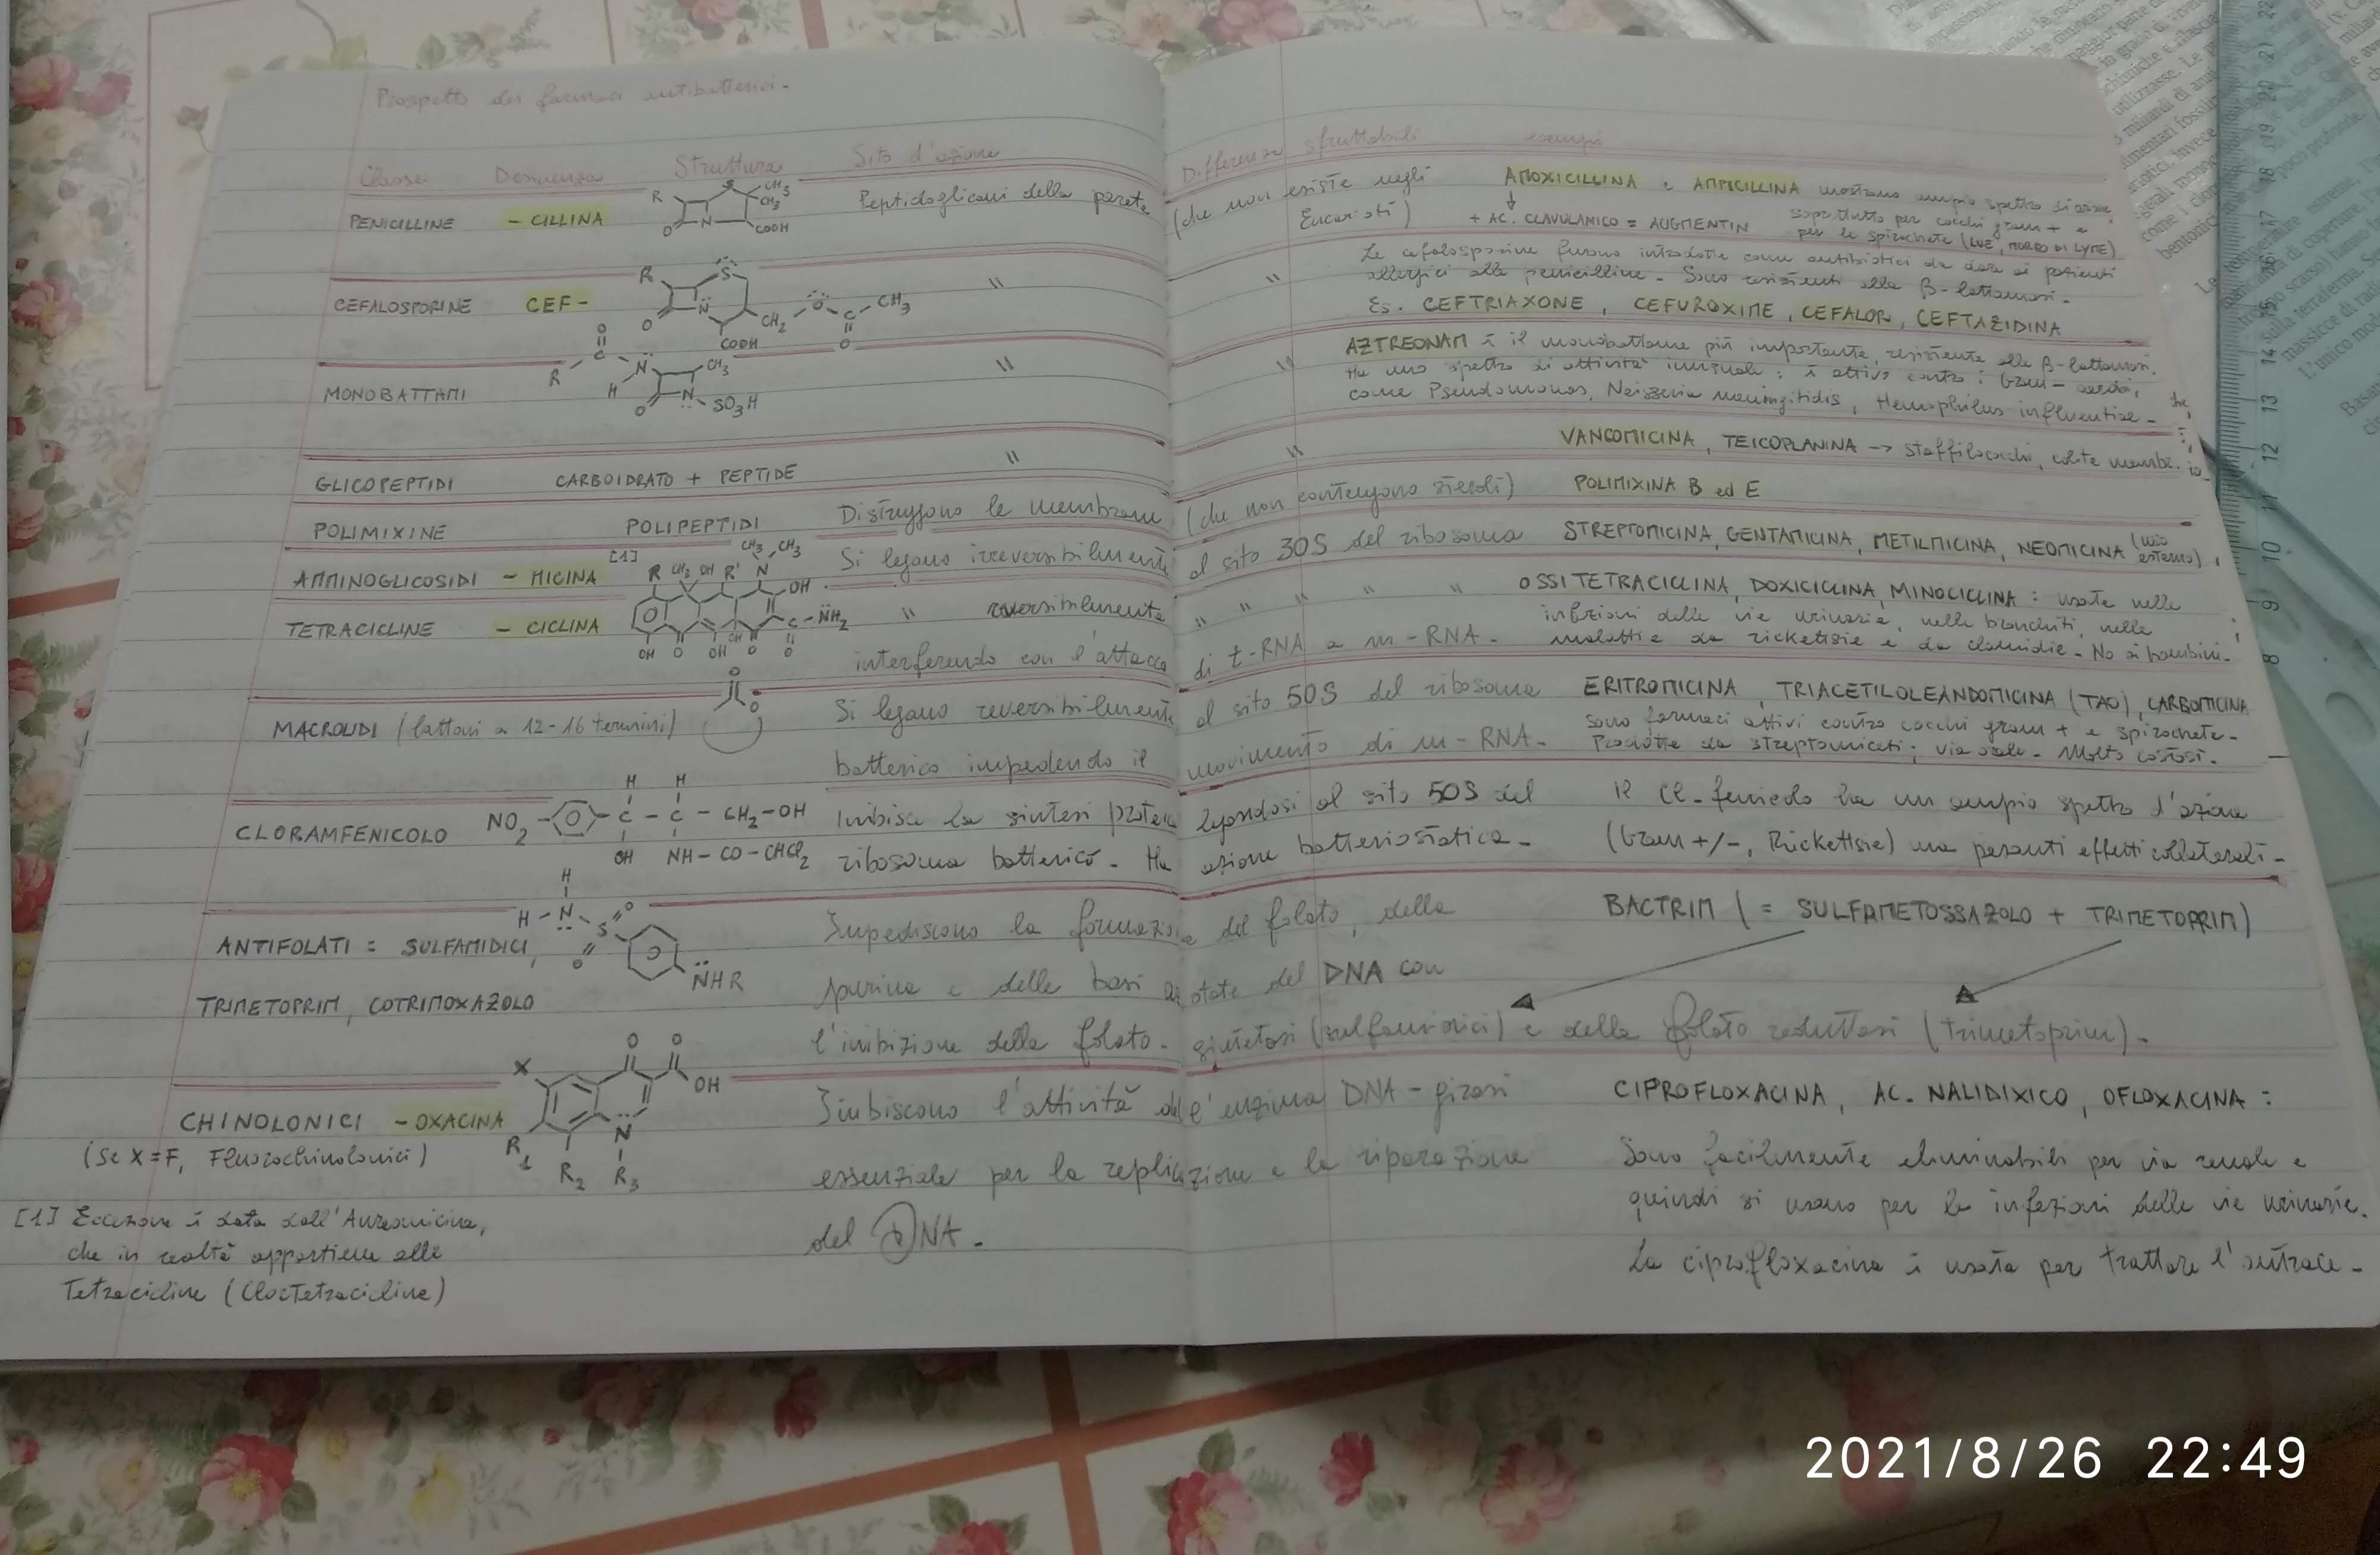 Prospetto dei farmaci antibatterici.
Classe Desinenza Struttura Sito d'azione Differenze sfruttabili esempi
PENICILLINE - CILLINA Peptidoglicani della parete (che non esiste negli Eucarioti)
R S CH3 CH3 O N COOH
AMOXICILLINA e AMPICILLINA mostrano ampio spetro di azione,
+ AC. CLAVULANICO = AUGMENTIN
soprattutto per cocchi gram + e
per le spirochete (LUE, MORBO DI LYME)
CEFALOSPORINE CEF- " "
R S O N COOH CH2 - O - C - CH3 O
Le cefalosporine furono introdotte come antibiotici da dare ai pazienti
allergici alle penicilline - Sono resistenti alla β-lattamasi.
Es. CEFTRIAXONE, CEFUROXIME, CEFALOR, CEFTAZIDINA
MONOBATTAMI " "
O C R N H CH3 O N SO3H
AZTREONAM è il monobattame più importante, resistente alle β-lattamasi.
Ha uno spettro di attività inusuale: è attivo contro i Gram - aerobi,
come Pseudomonas, Neisseria meningitidis, Hemophilus influentiae -
GLICOPEPTIDI CARBOIDRATO + PEPTIDE " "
VANCOMICINA, TEICOPLANINA -> staffilococchi, colite membr.
POLIMIXINE POLIPEPTIDI Distruggono le membrane (che non contengono steroli) POLIMIXINA B ed E
AMMINOGLICOSIDI - MICINA [1] Si legano irreversibilmente al sito 30S del ribosoma STREPTOMICINA, GENTAMICINA, METILMICINA, NEOMICINA (uso esterno)
TETRACICLINE - CICLINA " reversibilmente " " " " "
R CH3 OH R' N CH3 CH3 OH C - NH2 OH O OH OH O O
interferendo con l'attacco di t-RNA a m-RNA.
OSSITETRACICLINA, DOXICICLINA, MINOCICLINA: usate nelle
infezioni delle vie urinarie, nelle bronchiti, nelle
malattie da rickettsie e da clamidie - No ai bambini.
MACROLIDI (lattoni a 12-16 termini) O O
Si legano reversibilmente al sito 50S del ribosoma
batterico impedendo il movimento di m-RNA.
ERITROMICINA, TRIACETILOLEANDOMICINA (TAO), CARBOMICINA
sono farmaci attivi contro cocchi gram + e spirochete -
Prodotte da streptomiceti; via orale - Molto costosi.
CLORAMFENICOLO NO2 C - C - CH2-OH
H H OH NH-CO-CHCl2
Inibisce la sintesi proteica legandosi al sito 50S del
ribosoma batterico - Ha azione batteriostatica -
Il Cl-fenicolo ha un ampio spettro d'azione
(Gram +/-, Rickettsie) ma pesanti effetti collaterali -
ANTIFOLATI = SULFAMIDICI,
H H - N S O O NHR
TRIMETOPRIM, COTRIMOXAZOLO
Impediscono la formazione del folato, della
purina e delle basi azotate del DNA con
l'inibizione della folato-sintetasi (sulfamidici) e della folato reduttasi (trimetoprim) -
BACTRIM (= SULFAMETOSSAZOLO + TRIMETOPRIM)
CHINOLONICI - OXACINA
X O O OH R1 R2 R3 N
(Se X=F, Fluorochinolonici)
Inibiscono l'attività dell'enzima DNA-girasi
essenziale per la replicazione e la riparazione
del DNA -
CIPROFLOXACINA, AC. NALIDIXICO, OFLOXACINA:
Sono facilmente eliminabili per via renale e
quindi si usano per le infezioni delle vie urinarie.
La ciprofloxacina è usata per trattare l'antrace -
[1] Eccezione è data dall'Aureomicina,
che in realtà appartiene alle
Tetracicline (Clortetracicline)
2021/8/26 22:49